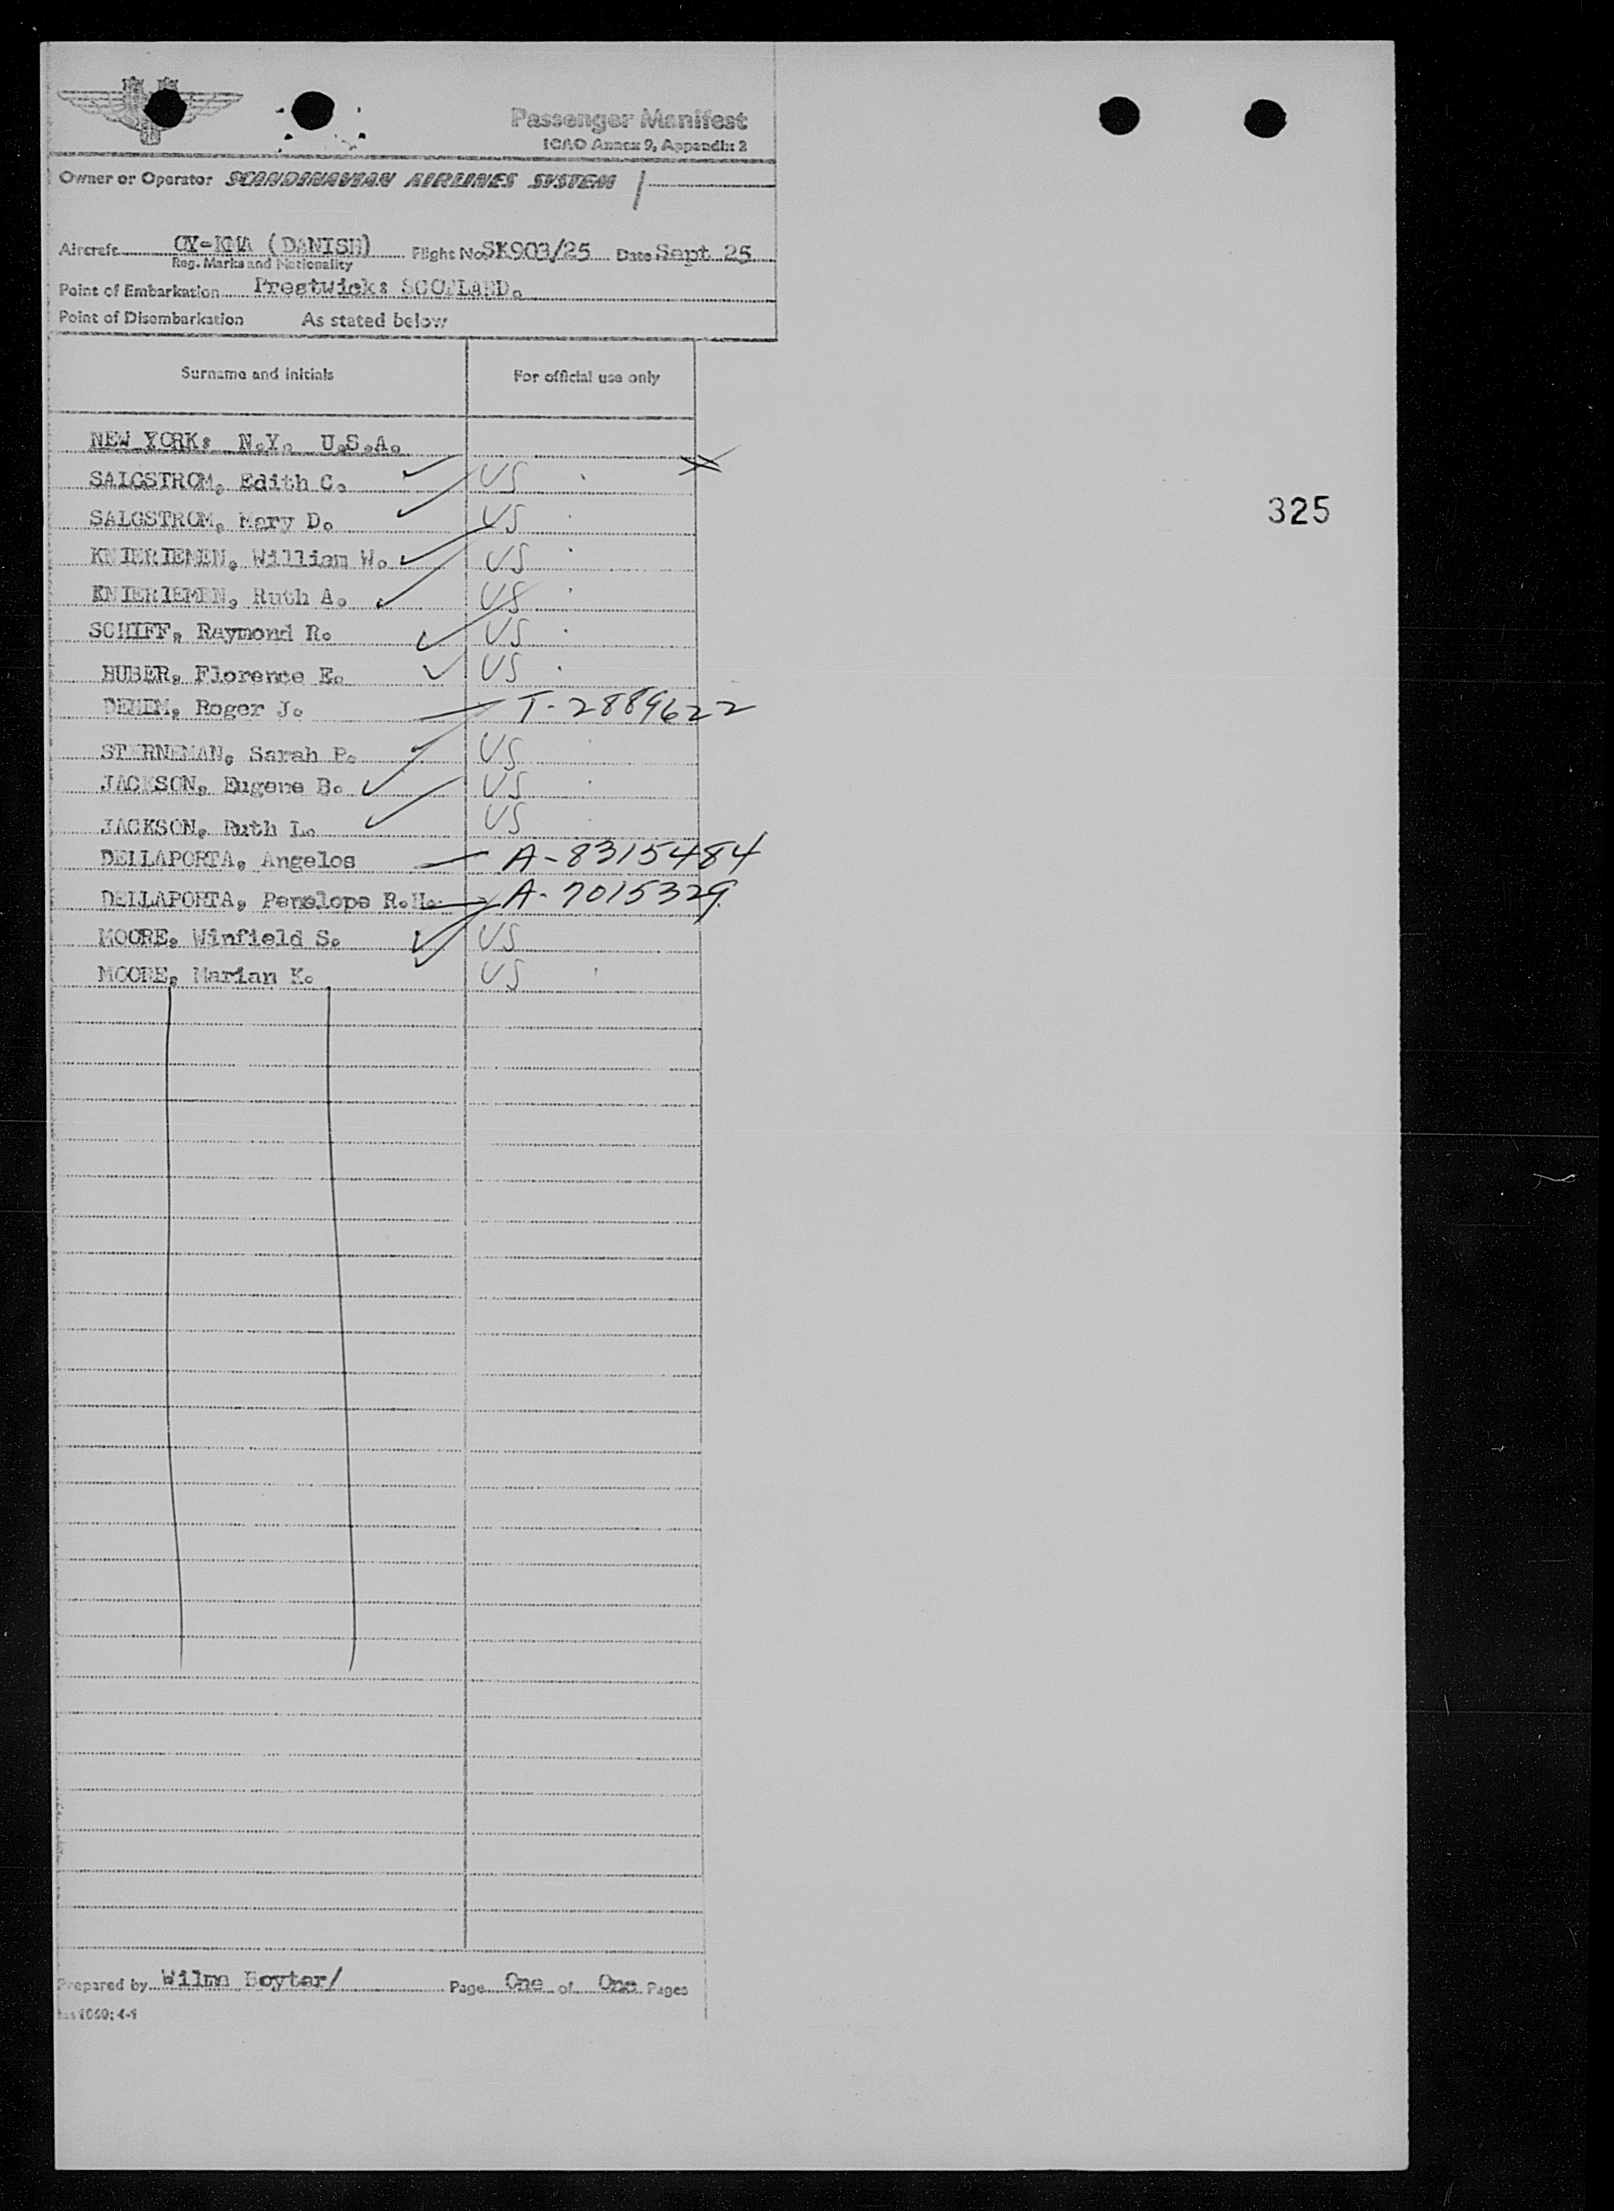 Passenger Manifest
ICAO Annex 9, Appendix 2
Owner or Operator SCANDINAVIAN AIRLINES SYSTEM
Aircraft OY-KMA (DANISH) Flight No. SK903/25 Date Sept 25
Reg. Marks and Nationality
Point of Embarkation Prestwick: SCOTLAND.
Point of Disembarkation As stated below
Surname and initials For official use only
NEW YORK: N.Y. U.S.A.
SALGSTROM, Edith C. US
SALGSTROM, Mary D. US
325
KNIERIEMEN, William W. US
KNIERIEMEN, Ruth A. US
SCHIFF, Raymond R. US
HUBER, Florence E. US
Roger J. T-2889622
STERNEMAN, Sarah P. US
JACKSON, Eugene B. US
JACKSON, Ruth L. US
DELLAPORTA, Angelos A-8315484
DELLAPORTA, Penelope R.H. A-7015329
MOORE, Winfield S. US
MOORE, Marian K. US
Prepared by Wilma Boyter/ Page One of One Pages